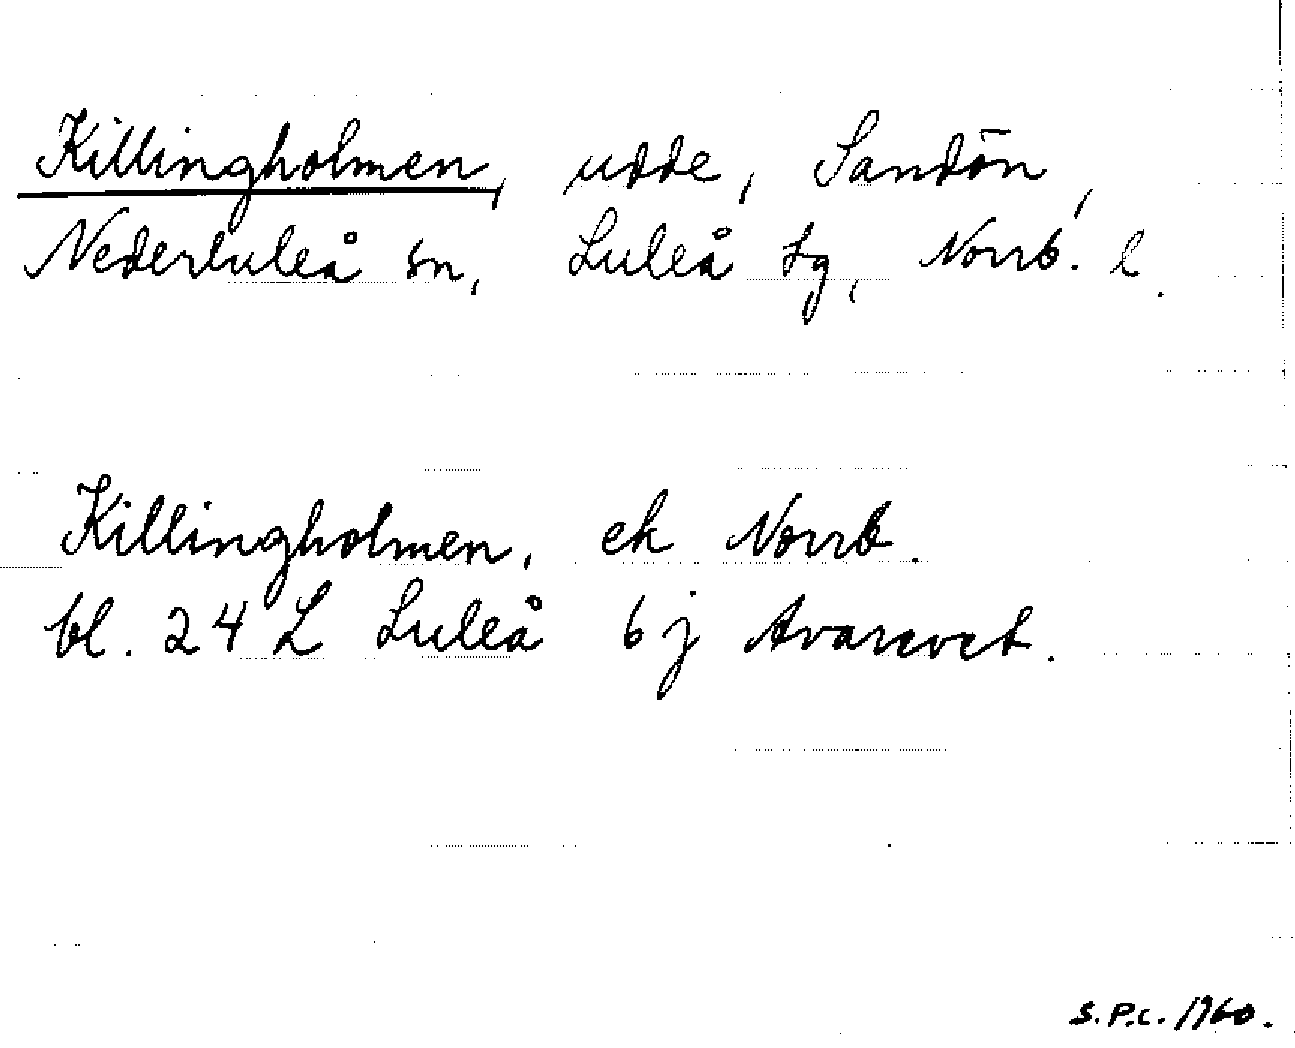 Killingholmen, udde, Sandön,
Nederluleå sn, Luleå tg, Norrb. l.
Killingholmen, ek Norrb.
bl. 24 L Luleå 6 j Avarevet.
S.P.C. 1960.